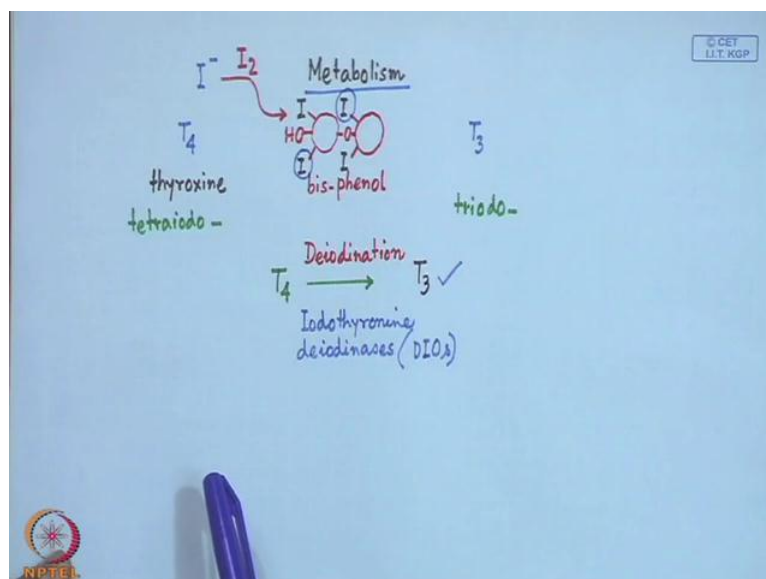 © CET
I.I.T. KGP
I⁻ I₂
Metabolism
I I
HO O
I I
bis-phenol
T₄
thyroxine
tetraiodo -
T₃
triodo -
Deiodination
T₄ T₃ ✓
Iodothyronine
deiodinases (DIOs)
NPTEL